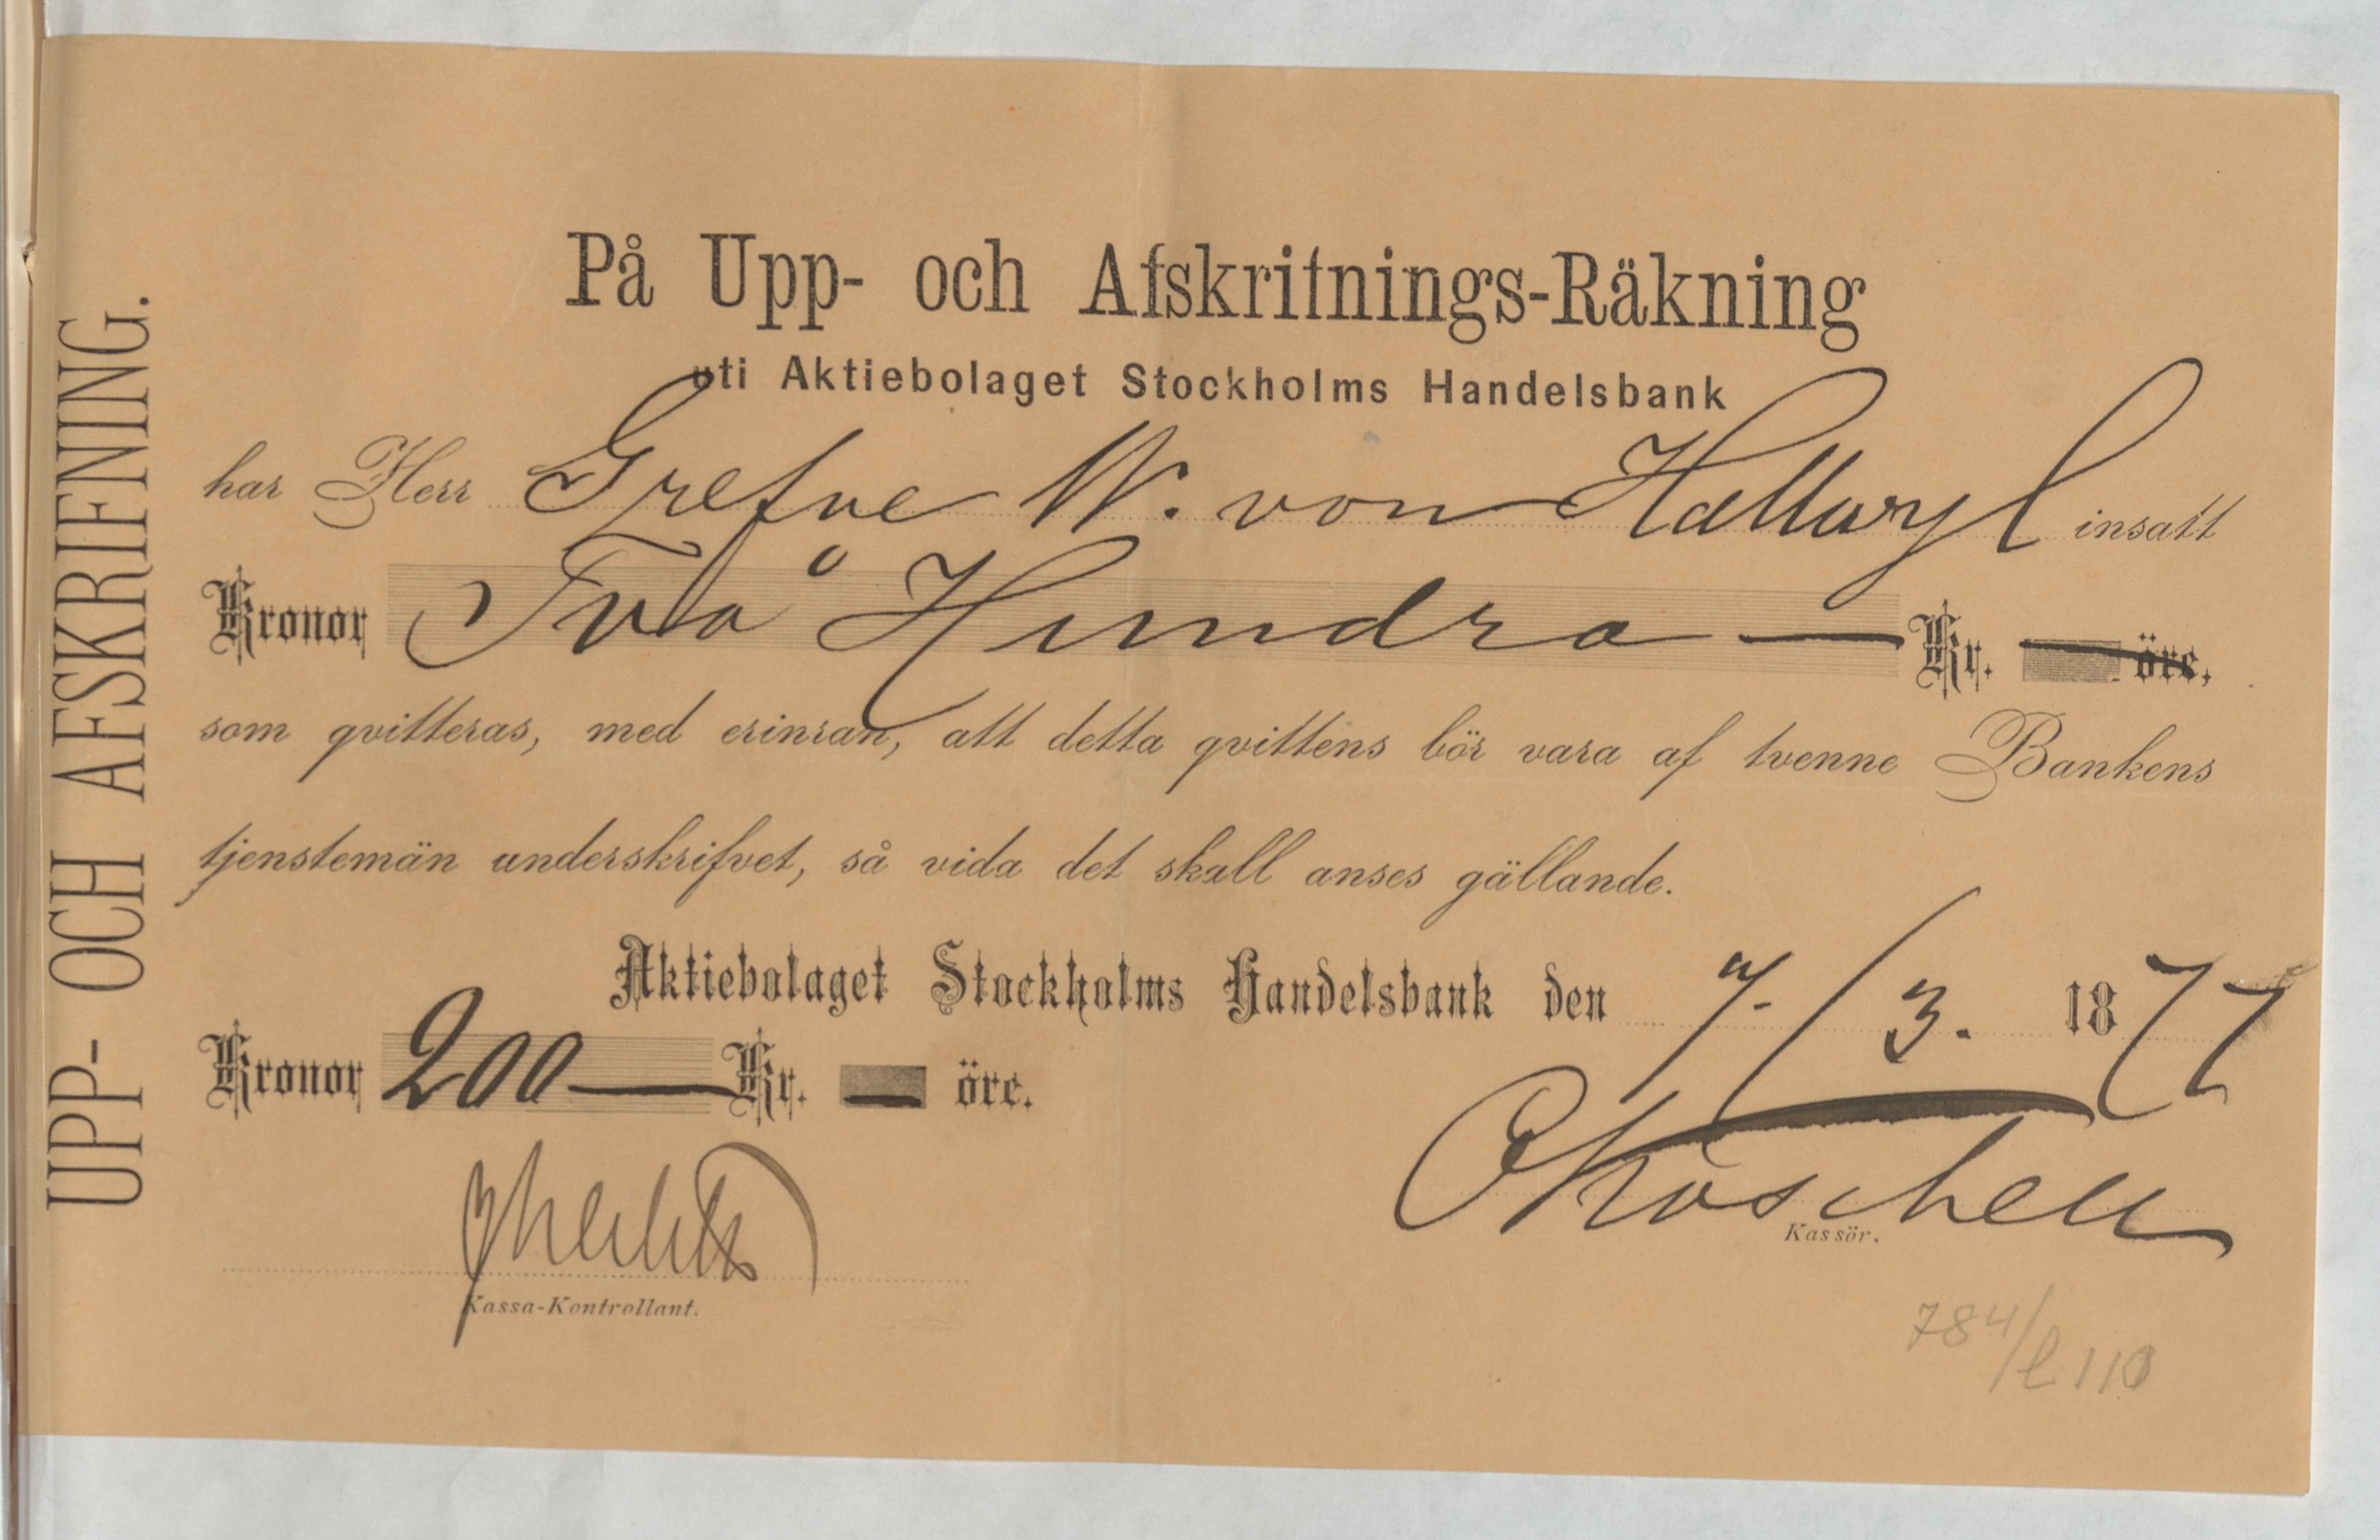 UPP- OCH AFSKRIFNING.
På Upp- och Afskrifnings-Räkning
uti Aktiebolaget Stockholms Handelsbank
har Herr Grefve W. von Hallwyl insatt
Kronor Två Hundra — Kr. — öre,
som qvitteras, med erinran, att detta qvittens bör vara af tvenne Bankens
tjenstemän underskrifvet, så vida det skall anses gällande.
Aktiebolaget Stockholms Handelsbank den 7./3. 1877
Kronor 200 — Kr. — öre.
Kassör.
Kassa-Kontrollant.
784/l 110